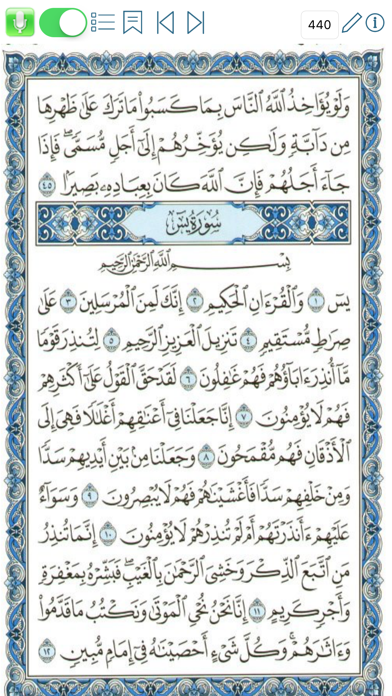 440
وَلَوْ يُؤَاخِذُ ٱللَّهُ ٱلنَّاسَ بِمَا كَسَبُوا۟ مَا تَرَكَ عَلَىٰ ظَهْرِهَا
مِن دَآبَّةٍ وَلَـٰكِن يُؤَخِّرُهُمْ إِلَىٰٓ أَجَلٍ مُّسَمًّى ۖ فَإِذَا
جَآءَ أَجَلُهُمْ فَإِنَّ ٱللَّهَ كَانَ بِعِبَادِهِۦ بَصِيرًۢا ٤٥
سُورَةُ يسٓ
بِسْمِ ٱللَّهِ ٱلرَّحْمَـٰنِ ٱلرَّحِيمِ
يسٓ ١ وَٱلْقُرْءَانِ ٱلْحَكِيمِ ٢ إِنَّكَ لَمِنَ ٱلْمُرْسَلِينَ ٣ عَلَىٰ
صِرَٰطٍ مُّسْتَقِيمٍ ٤ تَنزِيلَ ٱلْعَزِيزِ ٱلرَّحِيمِ ٥ لِتُنذِرَ قَوْمًا
مَّآ أُنذِرَ ءَابَآؤُهُمْ فَهُمْ غَـٰفِلُونَ ٦ لَقَدْ حَقَّ ٱلْقَوْلُ عَلَىٰٓ أَكْثَرِهِمْ
فَهُمْ لَا يُؤْمِنُونَ ٧ إِنَّا جَعَلْنَا فِىٓ أَعْنَـٰقِهِمْ أَغْلَـٰلًا فَهِىَ إِلَى
ٱلْأَذْقَانِ فَهُم مُّقْمَحُونَ ٨ وَجَعَلْنَا مِنۢ بَيْنِ أَيْدِيهِمْ سَدًّا
وَمِنْ خَلْفِهِمْ سَدًّا فَأَغْشَيْنَـٰهُمْ فَهُمْ لَا يُبْصِرُونَ ٩ وَسَوَآءٌ
عَلَيْهِمْ ءَأَنذَرْتَهُمْ أَمْ لَمْ تُنذِرْهُمْ لَا يُؤْمِنُونَ ١٠ إِنَّمَا تُنذِرُ
مَنِ ٱتَّبَعَ ٱلذِّكْرَ وَخَشِىَ ٱلرَّحْمَـٰنَ بِٱلْغَيْبِ ۖ فَبَشِّرْهُ بِمَغْفِرَةٍ
وَأَجْرٍ كَرِيمٍ ١١ إِنَّا نَحْنُ نُحْىِ ٱلْمَوْتَىٰ وَنَكْتُبُ مَا قَدَّمُوا۟
وَءَاثَـٰرَهُمْ ۚ وَكُلَّ شَىْءٍ أَحْصَيْنَـٰهُ فِىٓ إِمَامٍ مُّبِينٍ ١٢